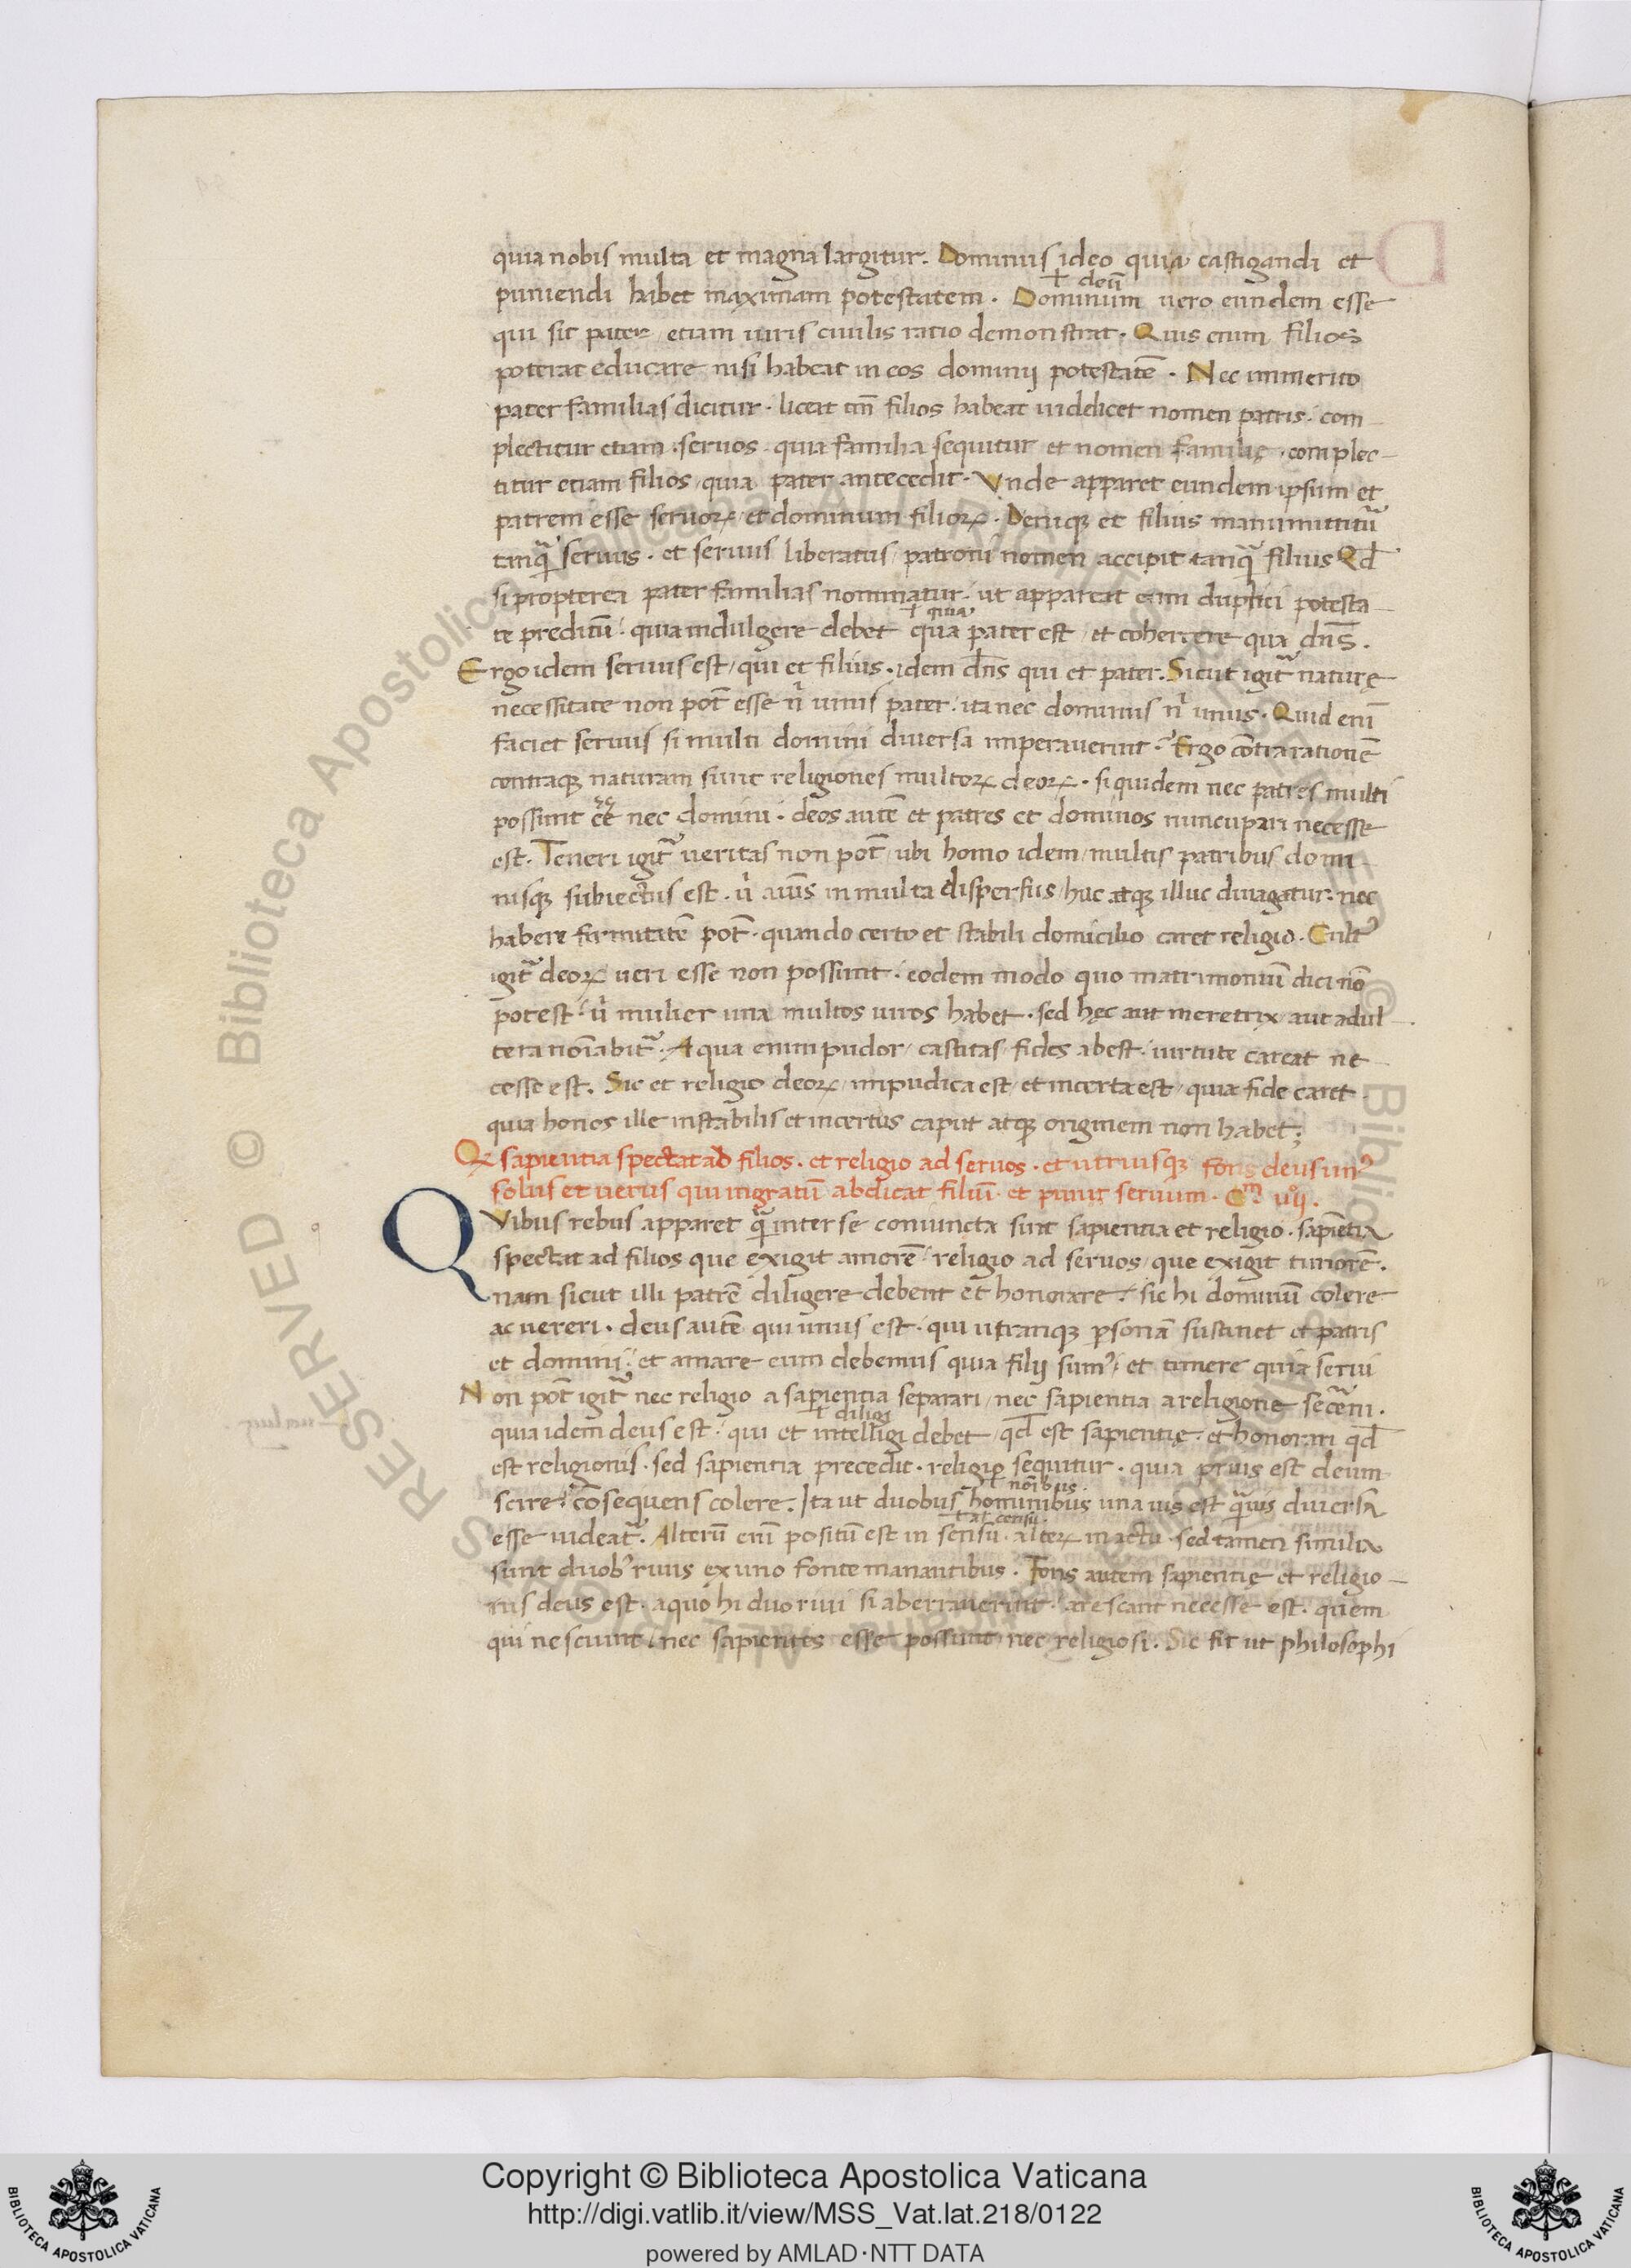 quia nobis multa et magna largitur. Dominus ideo quia castigandi et
ł deū
puniendi habet maximam potestatem. Dominum vero eundem esse
qui sit pater / etiam iuris civilis ratio demonstrat. Quis enim filios
poterat educare nisi habeat in eos dominij potestatē. Nec immerito
pater familias dicitur. liceat tm̄ filios habeat videlicet nomen patris. com
plectitur etiam servos. quia familia sequitur et nomen familię. complec-
titur etiam filios / quia pater antecedit. Vnde apparet eundem ipsum et
patrem esse servorꝝ / et dominum filiorꝝ. Deniqꝫ et filius manumittit᷑
tanqꝫ servus. et servus liberatus / patroni nomen accipit tanqꝫ filius Qd
si propterea pater familias nominatur. ut appareat eum duplici potesta-
ł quia
te preditū. quia indulgere debet qua pater est / et cohercere qua dn̄s.
Ergo idem servus est / qui et filius. idem dn̄s qui et pater. Sicut igit᷑ naturę
necessitate non pot̄ esse n̄ unus pater. ita nec dominus n̄ unus. Quid eni̅
faciet servus si multi domini diversa imperaverint? Ergo cōtra rationē
contraqꝫ naturam sunt religiones multorꝝ deorꝝ. siquidem nec patres multi
possunt ēē nec domini. deos autē et patres et dominos nuncupari necesse
est. Teneri igit᷑ veritas non pot̄ / ubi homo idem / multis patribus domi-
nisqꝫ subiectus est. u̇ aīus in multa dispersus / huc atqꝫ illuc divagatur. nec
habere firmitatē pot̄. quando certo et stabili domicilio caret religio. Cult᷒
igit᷑ deorꝝ veri esse non possunt. eodem modo quo matrimoniū dici nō
potest. u̇ mulier una multos viros habet. sed hęc aut meretrix / aut adul-
tera noi̅abit᷑. A qua enim pudor / castitas / fides abest. virtute careat ne-
cesse est. Sic et religio deorꝝ / impudica est / et incerta est / quia fide caret.
quia honos ille instabilis et incertus caput atqꝫ originem non habet;
Qꝝ sapientia spectat ad filios. et religio ad servos. et utriusqꝫ fons deus un᷒
solus et verus qui ingratū abdicat filiū. et punit servum. Cm̄ vıȷ.
Qvibus rebus apparet q̄ inter se coniuncta sint sapientia et religio. sapiētia
spectat ad filios que exigit amorē. religio ad servos / que exigit timorē.
nam sicut illi patrē diligere debent et honorare. sic hi dominū colere
ac vereri. deus autē qui unus est. qui utranqꝫ ꝑsonā sustinet et patris
et domini. et amare eum debemus quia filij sum᷒. et timere quia servi
Non pot̄ igit᷑ nec religio a sapientia separari / nec sapientia a religione secerni.
ł diligi
quia idem deus est. qui et intelligi debet / qd̄ est sapientię. et honorari qd̄
est religionis. sed sapientia precedit. religio sequitur. quia prius est deum
ł noi̅bus.
scire. cōsequens colere. Ita ut duobus hominibus una vis est q̄vis diversa
ł at censu.
esse videat᷑. Alterū eni̅ positū est in sensu. alterꝝ in actu. sed tamen similia
sunt duob᷒ rivis ex uno fonte manantibus. Fons autem sapientię et religio-
nis deus est. a quo hi duo rivi si aberraverint. arescant necesse est. quem
qui nesciunt. nec sapientes esse possunt nec religiosi. Sic fit ut philosophi
Biblioteca Apostolica Vaticana
ALL RIGHTS RESERVED ©
Copyright © Biblioteca Apostolica Vaticana
http://digi.vatlib.it/view/MSS_Vat.lat.218/0122
powered by AMLAD·NTT DATA
BIBLIOTECA APOSTOLICA VATICANA
BIBLIOTECA APOSTOLICA VATICANA